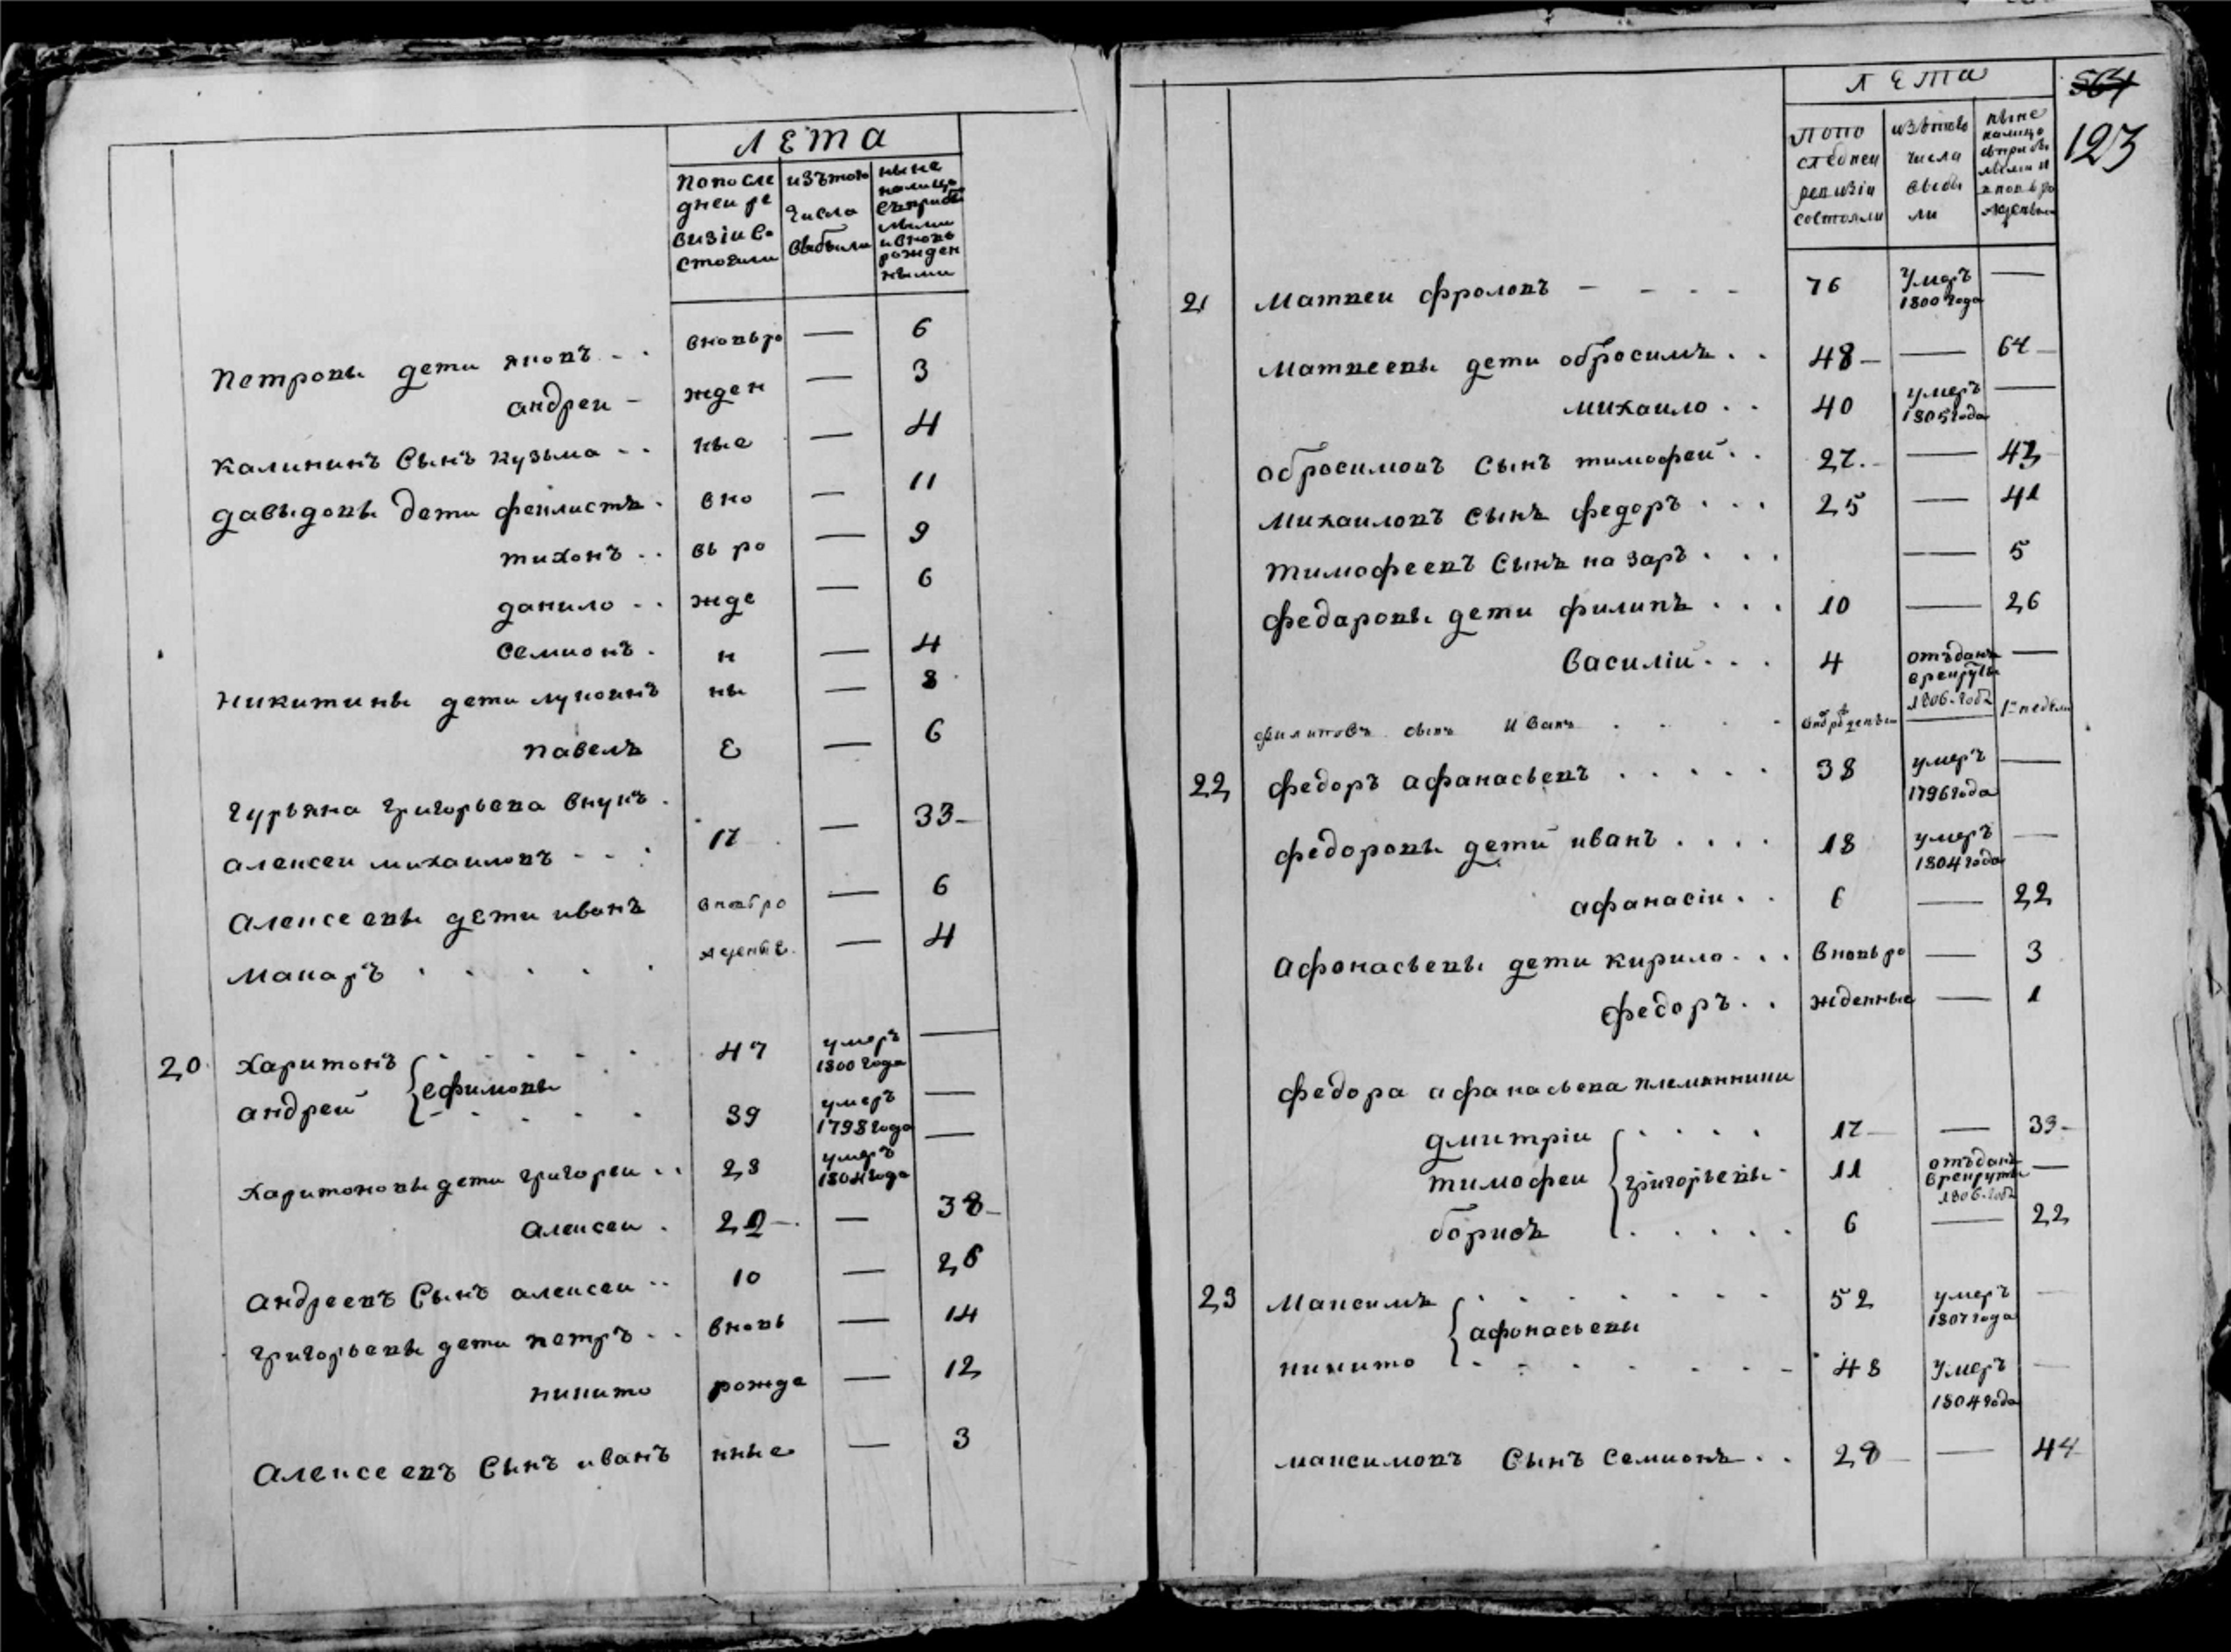 ЛЕТА
Попосле
дней ре
визіи со
стояли
изътого
числа
выбыли
ныне
налицо
съприбы
лыми
ивновь
рожден
ными
Петровы дети яковъ вновьро — 6
андреи жден — 3
Калининъ Сынъ кузьма ные — 4
давыдовы дети феилистъ вно — 11
тихонъ вь ро — 9
данило жде — 6
Семионъ н — 4
Никитины дети лукоянъ ны — 8
павелъ Е — 6
Гурьяна григорьева внукъ
алексеи михаиловъ 17 — 33
Алексеевы дети иванъ вновьро — 6
Макаръ жденые — 4
20 Харитонъ ефимовы 47 умеръ 1800 года —
андрей 39 умеръ 1798 года —
Харитоновы дети григореи 28 умеръ 1804 года —
алексеи 22 — 38
андреевъ Сынъ алексеи 10 — 26
григорьевы дети петръ вновь — 14
никито рожде — 12
Алексеевъ Сынъ иванъ нные — 3
ЛЕТА
564
123
Попо
следнеи
ревизіи
состояли
изътово
числа
выбы
ли
ныне
налицо
съприбы
лыми и
вновьро
жденным
21 Матвеи фроловъ 76 Умеръ 1800 года —
Матвеевы дети обросимъ 48 — 64
михаило 40 умеръ 1805 года —
обросимовъ Сынъ тимофей 27 — 43
Михаиловъ Сынъ федоръ 25 — 41
Тимофеевъ Сынъ назаръ — 5
Федаровы дети филипъ 10 — 26
Василіи 4 отъданъ врекруты 1806 года —
филиповъ сынъ Иванъ — 1 недели
22 федоръ афанасьевъ 38 умеръ 1796 года —
федоровы дети иванъ 18 умеръ 1804 года —
афанасіи 6 — 22
Афонасьевы дети кирило вновьро — 3
федоръ жденные — 1
федора афанасьева племянники
дмитріи григорьевы 17 — 33
тимофеи 11 отъданъ врекруты 1806 года —
борисъ 6 — 22
23 Максимъ афонасьевы 52 умеръ 1807 года —
никито 48 Умеръ 1804 года —
максимовъ Сынъ Семионъ 28 — 44